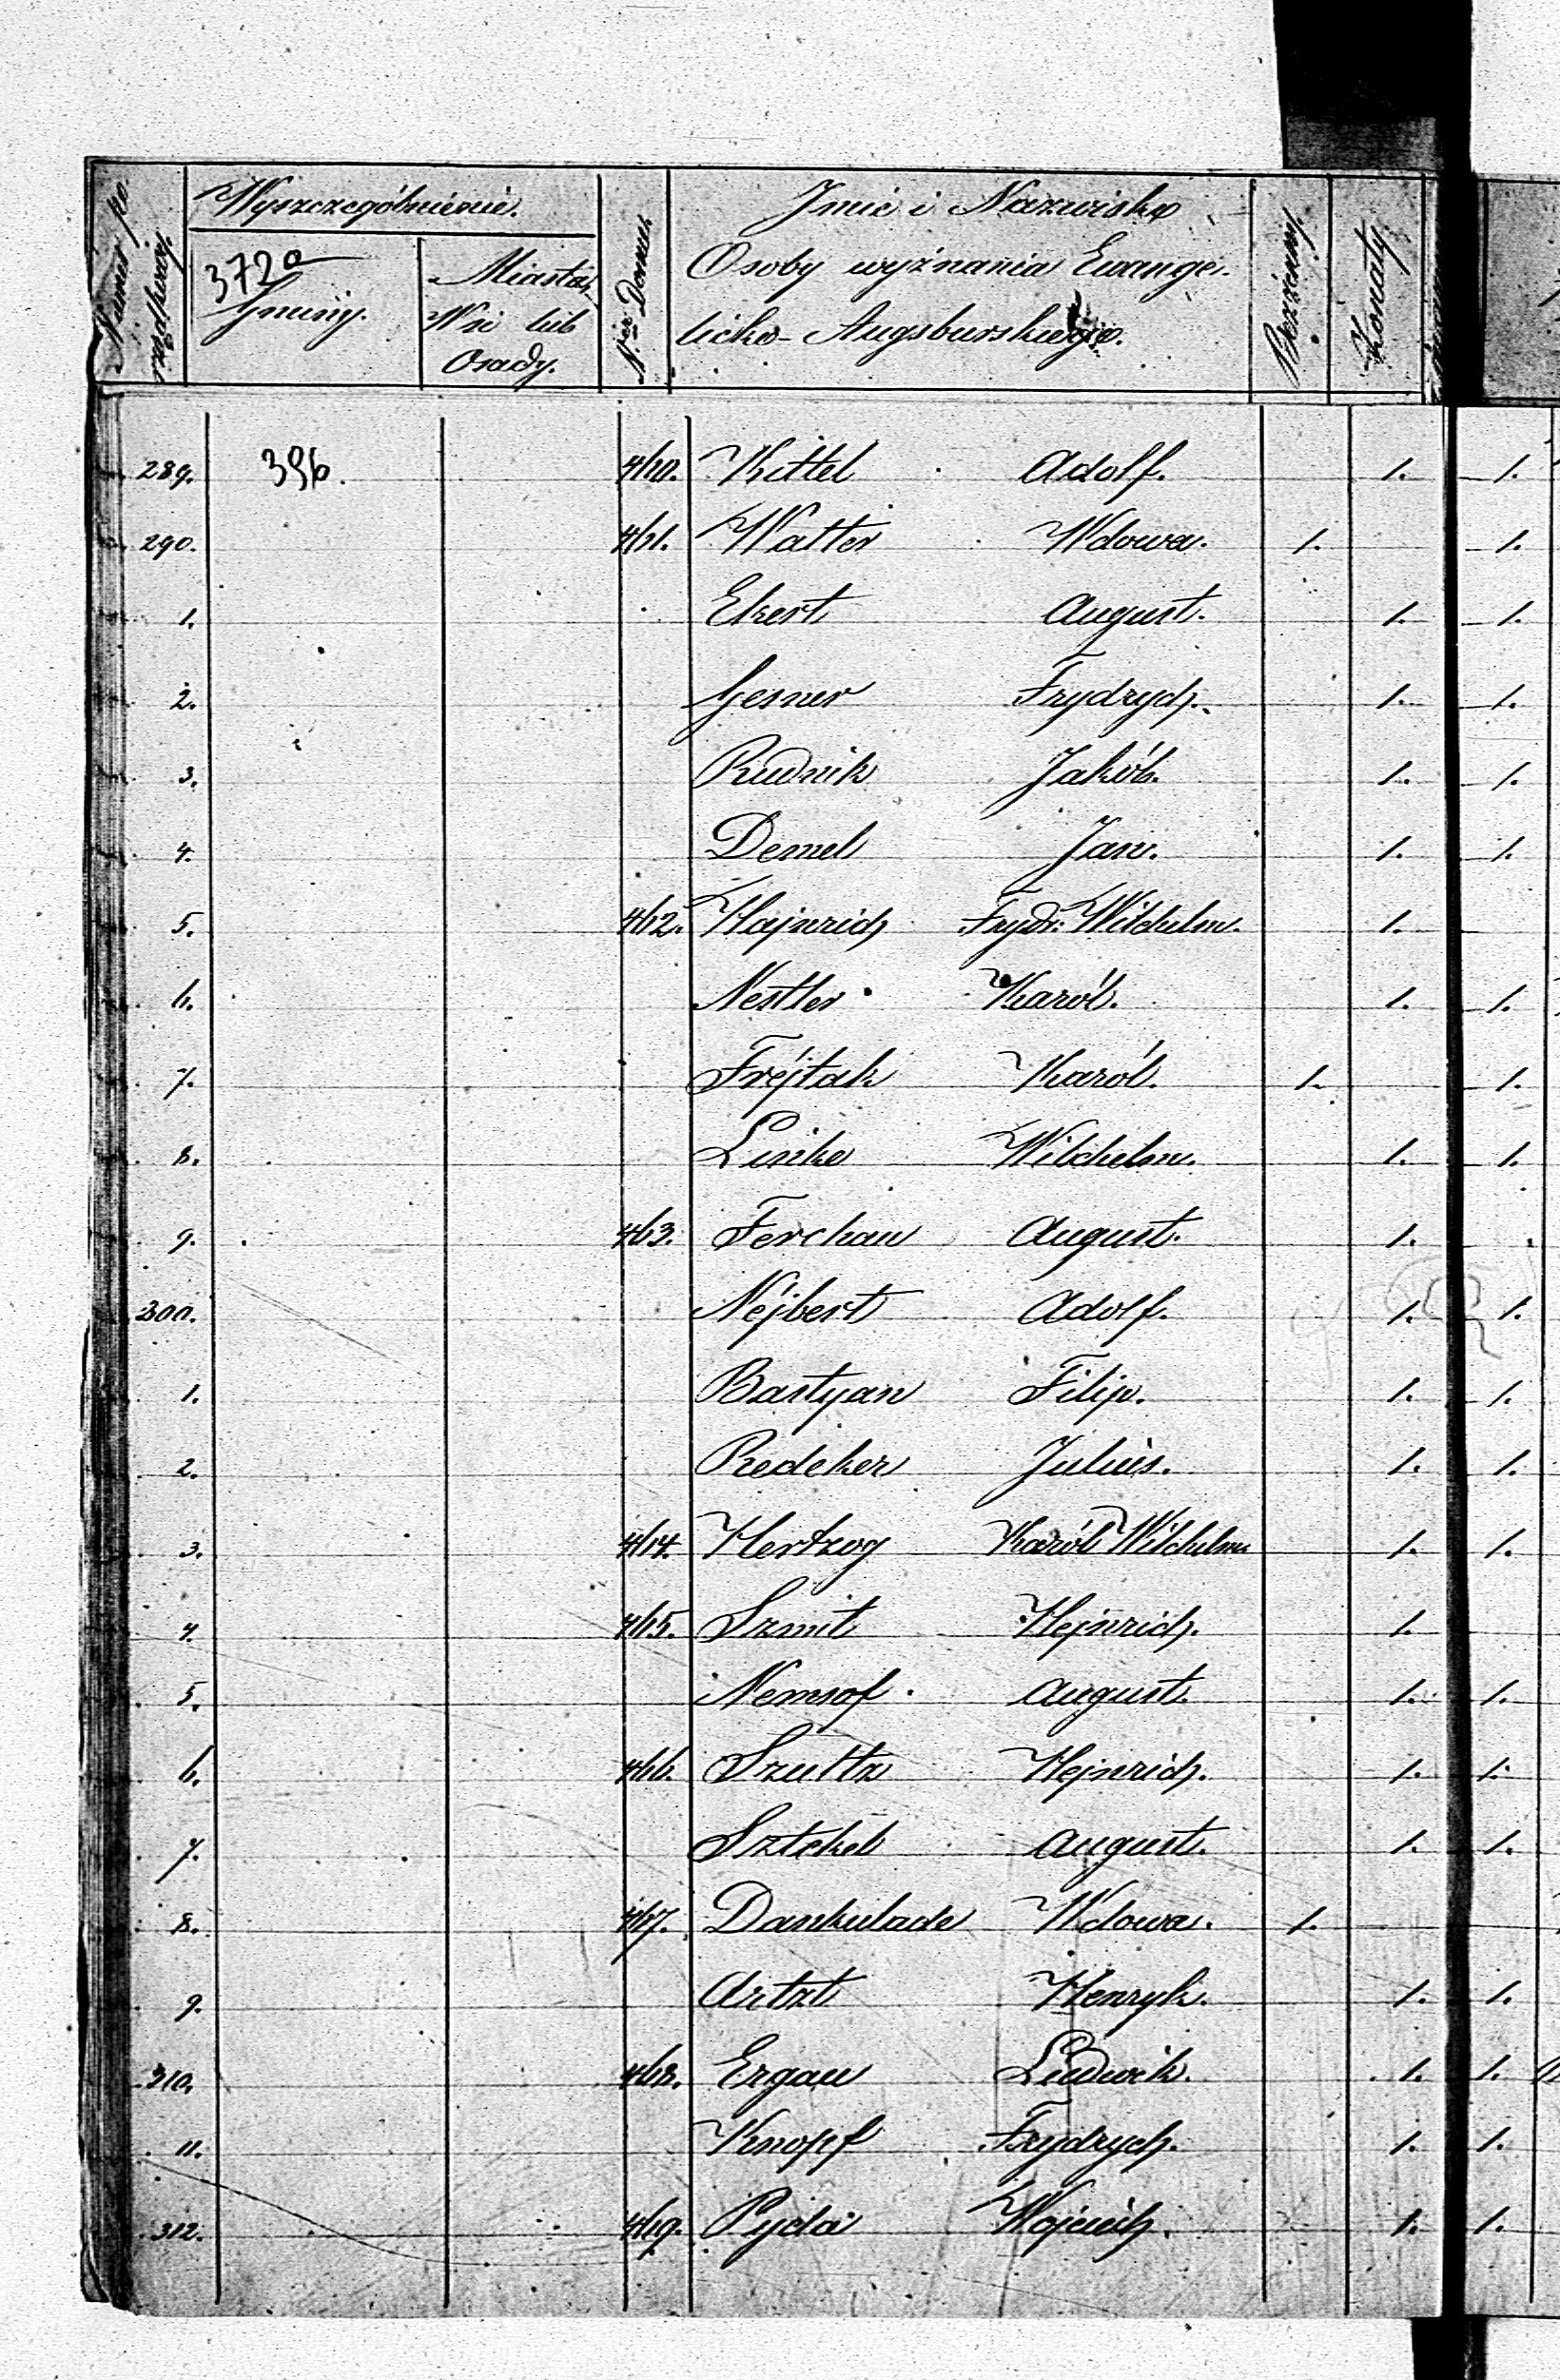 Numer po rządkowy.
Wyszczególnienie.
372a
Gminy.
Miasta,
Wsi lub
Osady.
Ner Domu.
Imie i Nazwisko
Osoby wyznania Ewange-
licko-Augsburskiego.
Bezżenny.
Żonaty
289. 396. 460. Kittel Adolf. 1. 1.
290. 461. Walter Wdowa. 1. 1.
1. Ekert August. 1. 1.
2. Gesner Frydrych. 1. 1.
3. Rudnik Jakób. 1. 1.
4. Demel Jan. 1. 1.
5. 462. Hajnrich Frydr: Wilchelm. 1.
6. Nestler Karól. 1. 1.
7. Fréjtak Karól. 1. 1.
8. Linke Wilchelm. 1. 1.
9. 463. Ferchau August. 1.
300. Néjbert Adolf. 1. 1.
1. Bastyan Filip. 1. 1.
2. Redeker Julius. 1. 1.
3. 464. Hertzog Karól Wilchelm 1. 1.
4. 465. Szmit Hejnrich. 1.
5. Nemsof August. 1. 1.
6. 466. Szultz Hejnrich. 1. 1.
7. Sztekel August. 1. 1.
8. 467. Dankulade Wdowa. 1.
9. Artzt Henryk. 1. 1.
310. 468. Ergau Ludwik. 1. 1.
11. Knopf Frydrych. 1. 1.
312. 469. Pyda Wojciech. 1. 1.